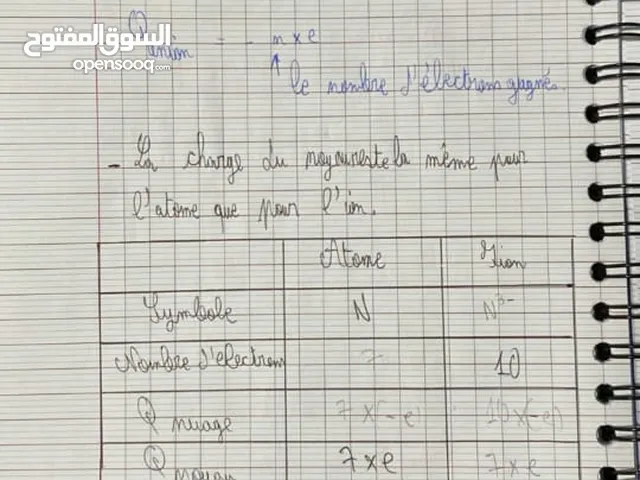 السوق المفتوح
opensooq.com
Q anion = - n x e
↑
le nombre d'électrons gagnés.
- La charge du noyau reste la même pour
l'atome que pour l'ion.
Atome Ion
Symbole N N³⁻
Nombre d'électron 7 10
Q nuage 7x(-e) 10x(-e)
Q noyau 7xe 7xe